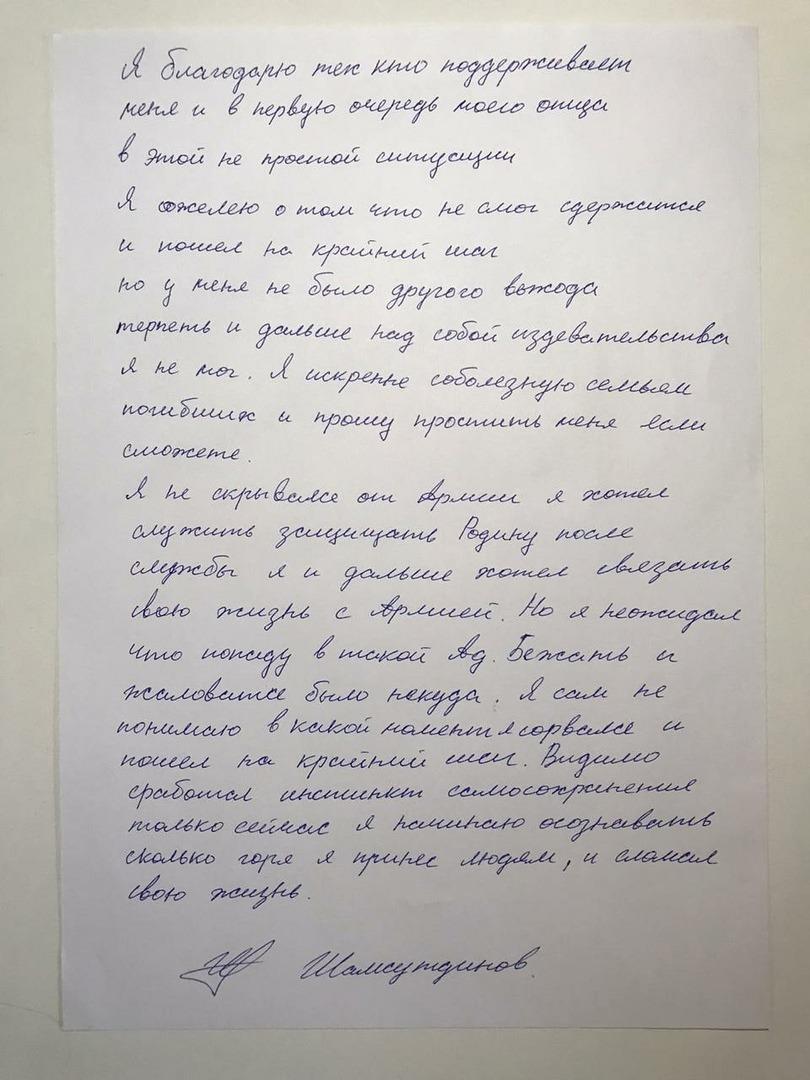 Я благодарю тех кто поддерживает
меня и в первую очередь моего отца
в этой не простой ситуации
Я сожелею о том что не смог сдержатся
и пошел на крайний шаг
но у меня не было другого выхода
терпеть и дальше над собой издевательства
я не мог. Я искренне соболезную семьям
погибших и прошу простить меня если
сможете.
Я не скрывался от Армии я хотел
служить защищать Родину после
службы я и дальше хотел связать
свою жизнь с Армией. Но я неожидал
что попаду в такой Ад. Бежать и
жаловатся было некуда. Я сам не
понимаю в какой момент я сорвался и
пошел на крайний шаг. Видимо
сработал инстинкт самосохранения
только сейчас я начинаю осознавать
сколько горя я принес людям, и сломал
свою жизнь.
Шамсутдинов.